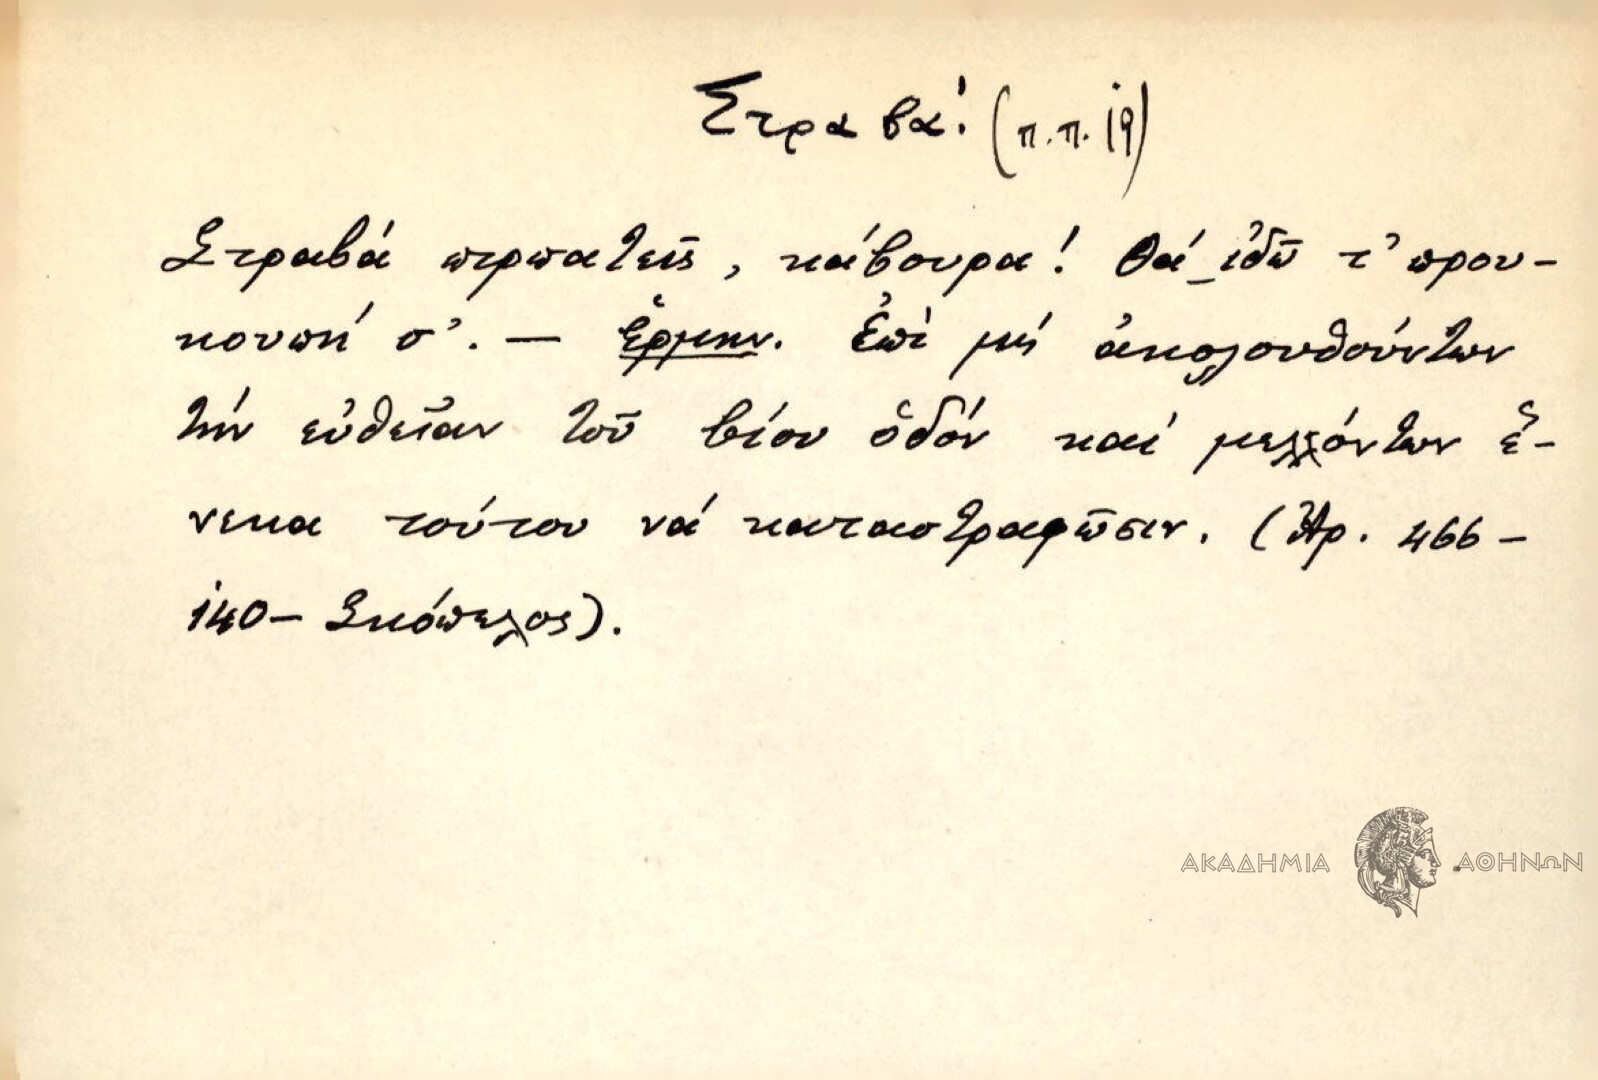 Στραβά! (π.π. 19)
Στραβά πιρπατεῖς, κάβουρα! Θά ἰδῶ τ' πρου-
κουπή σ'. — Ἑρμην. Ἐπί μή ἀκολουθούντων
τήν εὐθεῖαν τοῦ βίου ὁδόν καί μελλόντων ἕ-
νεκα τούτου νά καταστραφῶσιν. (Ἀρ. 466 -
140 - Σκόπελος).
ΑΚΑΔΗΜΙΑ ΑΘΗΝΩΝ